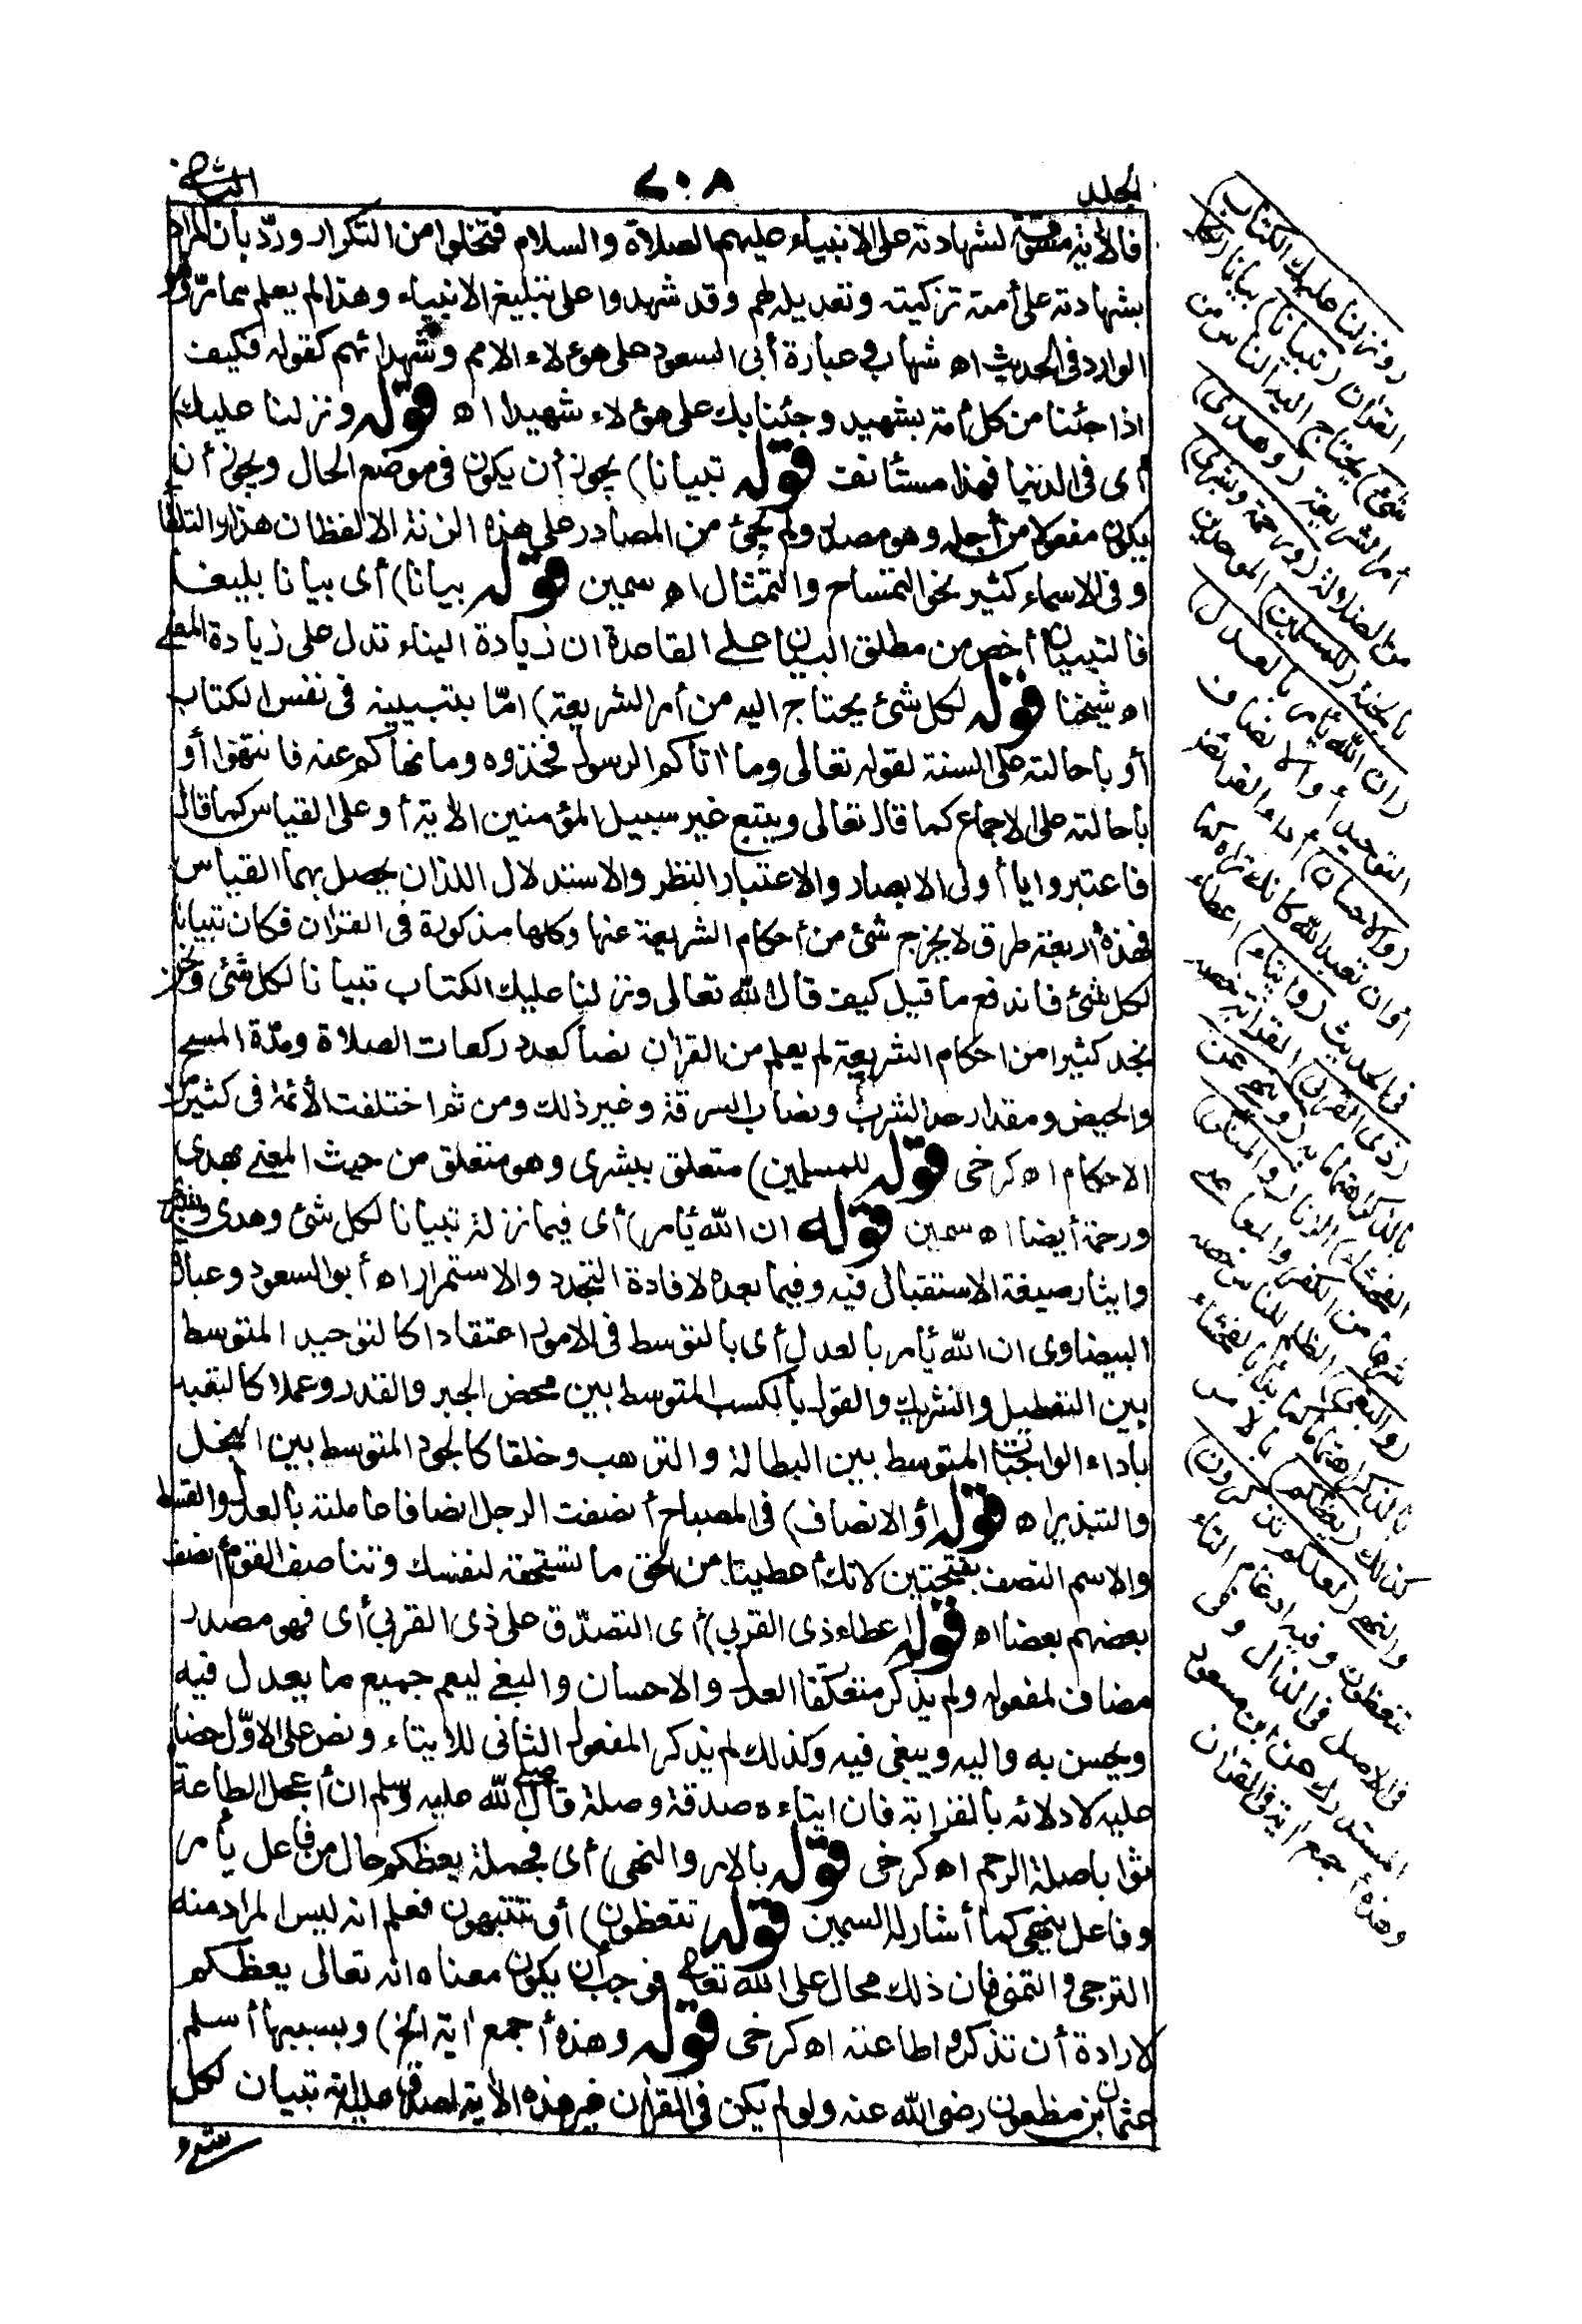 الجلد
٦٠٨
الثانى
فالأية مسوقة لشهادته على الانبياء عليهم الصلاة والسلام فتخلوا من التكرار وردّ بأن المراد
بشهادته على أمته تزكيته وتعديله لهم وقد شهدوا على تبليغ الانبياء وهذا لم يعلم مما مرّ وهو
الوارد فى الحديث اه شهاب وفى عبارة أبى السعود على هؤلاء الامم وشهدائهم كقوله فكيف
اذا جئنا من كل أمة بشهيد وجئنا بك على هؤلاء شهيدا اه قوله ونزلنا عليك)
أى فى الدنيا فهذا مستأنف قوله تبيانا) يجوز أن يكون فى موضع الحال ويجوز أن
يكون مفعولا من أجله وهو مصدر ولم يجئ من المصادر على هذه الزنة الا لفظان هذا والتلقا
وفى الاسماء كثير نحو التمساح والتمثال اه سمين قوله بيانا) أى بيانا بليغا
فالتبيان أخص من مطلق البيان على القاعدة ان زيادة البناء تدل على زيادة المعنى
اه شيخنا قوله لكل شئ يحتاج اليه من أمر الشريعة) امّا بتبيينه فى نفس الكتاب
أو بأحالته على السنة لقوله تعالى وما اتاكم الرسول فخذوه وما نهاكم عنه فانتهوا أو
بأحالته على الاجماع كما قال تعالى ويتبع غير سبيل المؤمنين الأية أو على القياس كما قال
فاعتبروا يا أولى الابصار والاعتبار النظر والاستدلال اللذان يحصل بهما القياس
فهذه أربعة طرق لا يخرج شئ من أحكام الشريعة عنها وكلها مذكورة فى القرأن فكان تبيانا
لكل شئ فاندفع ما قيل كيف قال الله تعالى ونزلنا عليك الكتاب تبيانا لكل شئ ونحن
نجد كثيرا من احكام الشريعة لم يعلم من القرأن نصا كعدد ركعات الصلاة ومدّة المسح
والحيض ومقدار حد الشرب ونصاب السرقة وغير ذلك ومن ثم اختلفت الأئمة فى كثير من
الاحكام اه كرخى قوله للمسلمين) متعلق ببشرى وهو متعلق من حيث المعنى بهدى
ورحمة أيضا اه سمين قوله ان الله يأمر) أى فيما نزلة تبيانا لكل شئ وهدى وبشرى
وايثار صيغة الاستقبال فيه وفيما بعده لافادة التجدد والاستمرار اه أبو السعود وعبارة
البيضاوى ان الله يأمر بالعدل أى بالتوسط فى الامور اعتقادا كالتوحيد المتوسط
بين التعطيل والتشريك والقول بالكسب المتوسط بين محض الجبر والقدر وعملا كالتعبد
بأداء الواجبات المتوسط بين البطالة والترهب وخلقا كالجود المتوسط بين البخل
والتبذير اه قوله أو الانصاف) فى المصباح أنصفت الرجل انصافا عاملته بالعدل والقسط
والاسم النصف بفتحتين لانك أعطيته من الحق ما تستحقه لنفسك وتناصف القوم أنصف
بعضهم بعضا اه قوله اعطاء ذى القربى) أى التصدّق على ذى القربى أى فهو مصدر
مضاف لمفعوله ولم يذكر متعلقا العدل والاحسان والبغى ليعم جميع ما يعدل فيه
ويحسن به واليه ويبغى فيه وكذلك لم يذكر المفعول الثانى للايتاء ونص على الاوّل حضا
عليه لادلائه بالقرابة فان ايتاءه صدقة وصلة قال صلى الله عليه وسلم ان أعجل الطاعة
ثوابا صلة الرحم اه كرخى قوله بالامر والنهى) أى فجملة يعظكم حال من فاعل يأمر
وفاعل ينهى كما أشار له السمين قوله تتعظون) أو تتنبهون فعلم انه ليس المراد منه
الترجى والتمنى فان ذلك محال على الله تعالى فوجب أن يكون معناه انه تعالى يعظكم
لارادة أن تذكروا طاعته اه كرخى قوله وهذه أجمع أية الخ) وبسببها أسلم
عثمان بن مظعون رضى الله عنه ولو لم يكن فى القرأن غير هذه الأية لصدق عليه انه تبيان لكل
شئ
(ونزلنا عليك الكتاب)
القرأن (تبيانا) بيانا (لكل
شئ) يحتاج اليه الناس من
أمر الشريعة (وهدى)
من الضلالة (ورحمة وبشرى)
بالجنة (للمسلمين) الموحدين
(ان الله يأمر بالعدل)
التوحيد أو الانصاف
(والاحسان) أداء الفرائض
أو ان تعبد الله كانك تراه كما
فى الحديث (وايتاء) اعطاء
(ذى القربى) القرابة خصه
بالذكر اهتماما به (وينهى عن
الفحشاء) الزنا (والمنكر)
شرعا من الكفر والمعاصى
(والبغى) الظلم للناس خصه
بالذكر اهتماما كما بدأ بالفحشاء
كذلك (يعظكم) بالامر
والنهى (لعلكم تذكرون)
تتعظون وفيه ادغام التاء
فى الاصل فى الذال وفى
المستدرك عن ابن مسعود
وهذه أجمع أية فى القرأن